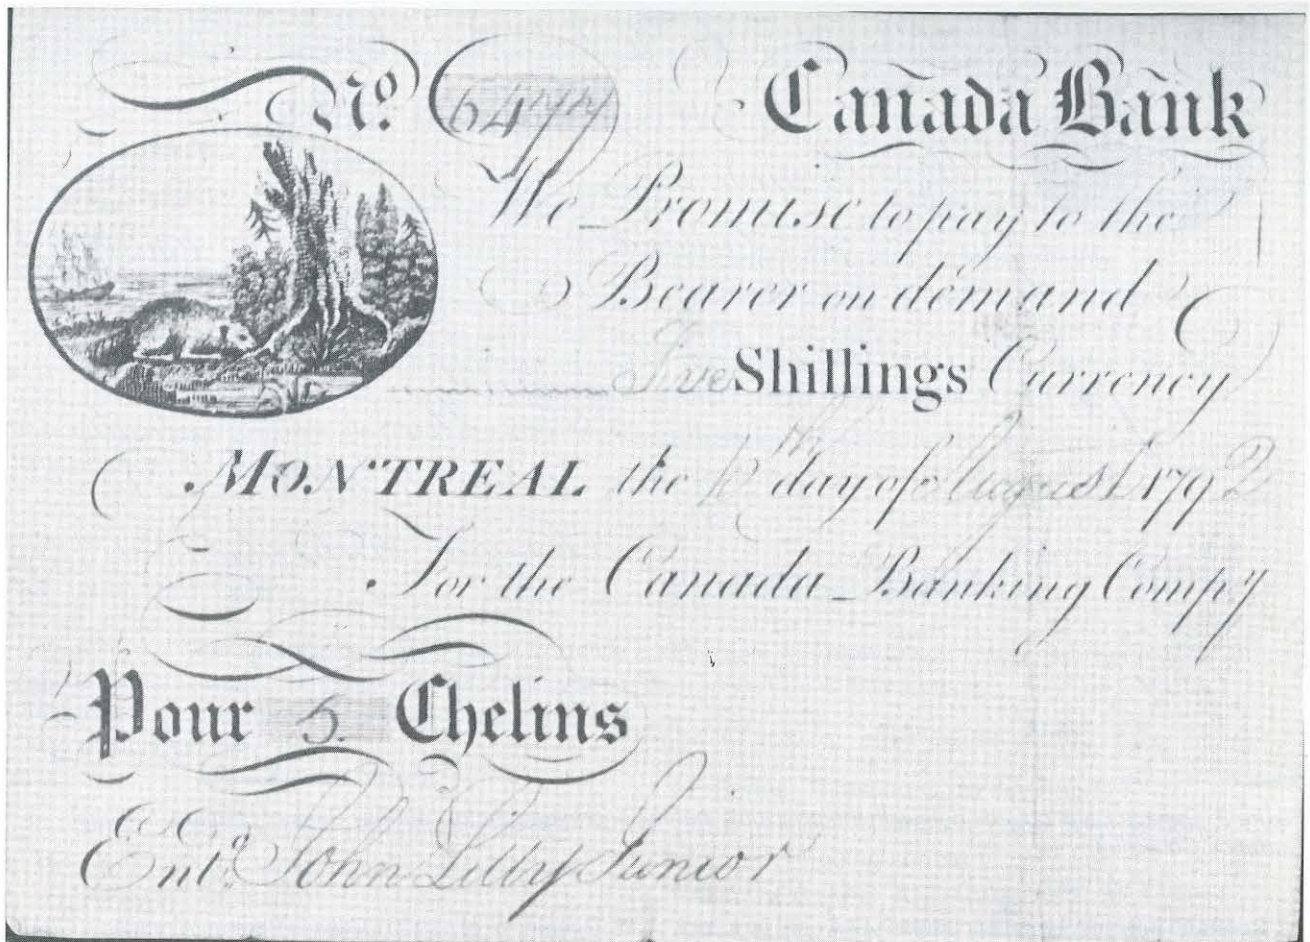 No. 6477 Canada Bank
We Promise to pay to the
Bearer on demand
Five Shillings Currency
MONTREAL the 12th day of August 1792
For the Canada Banking Compy
Pour 5. Chelins
Entd. John Lilly Junior